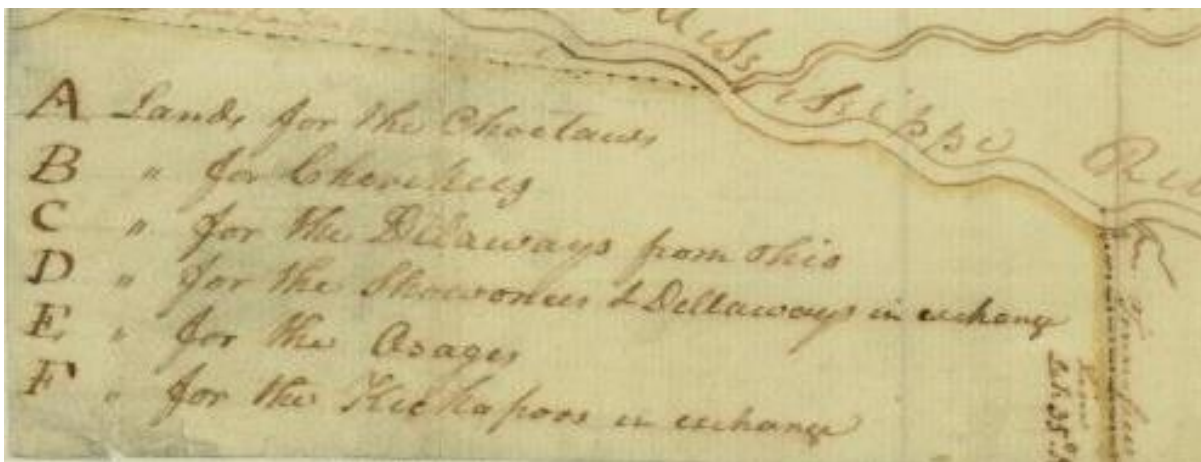 Mississippi Ri
A Lands for the Choctaws
B " for Cherikees
C " for the Delaways from Ohio
D " for the Shawonees & Dellaways in exchange
E " for the Osages
F " for the Kickapoos in exchange
Lat. 35°